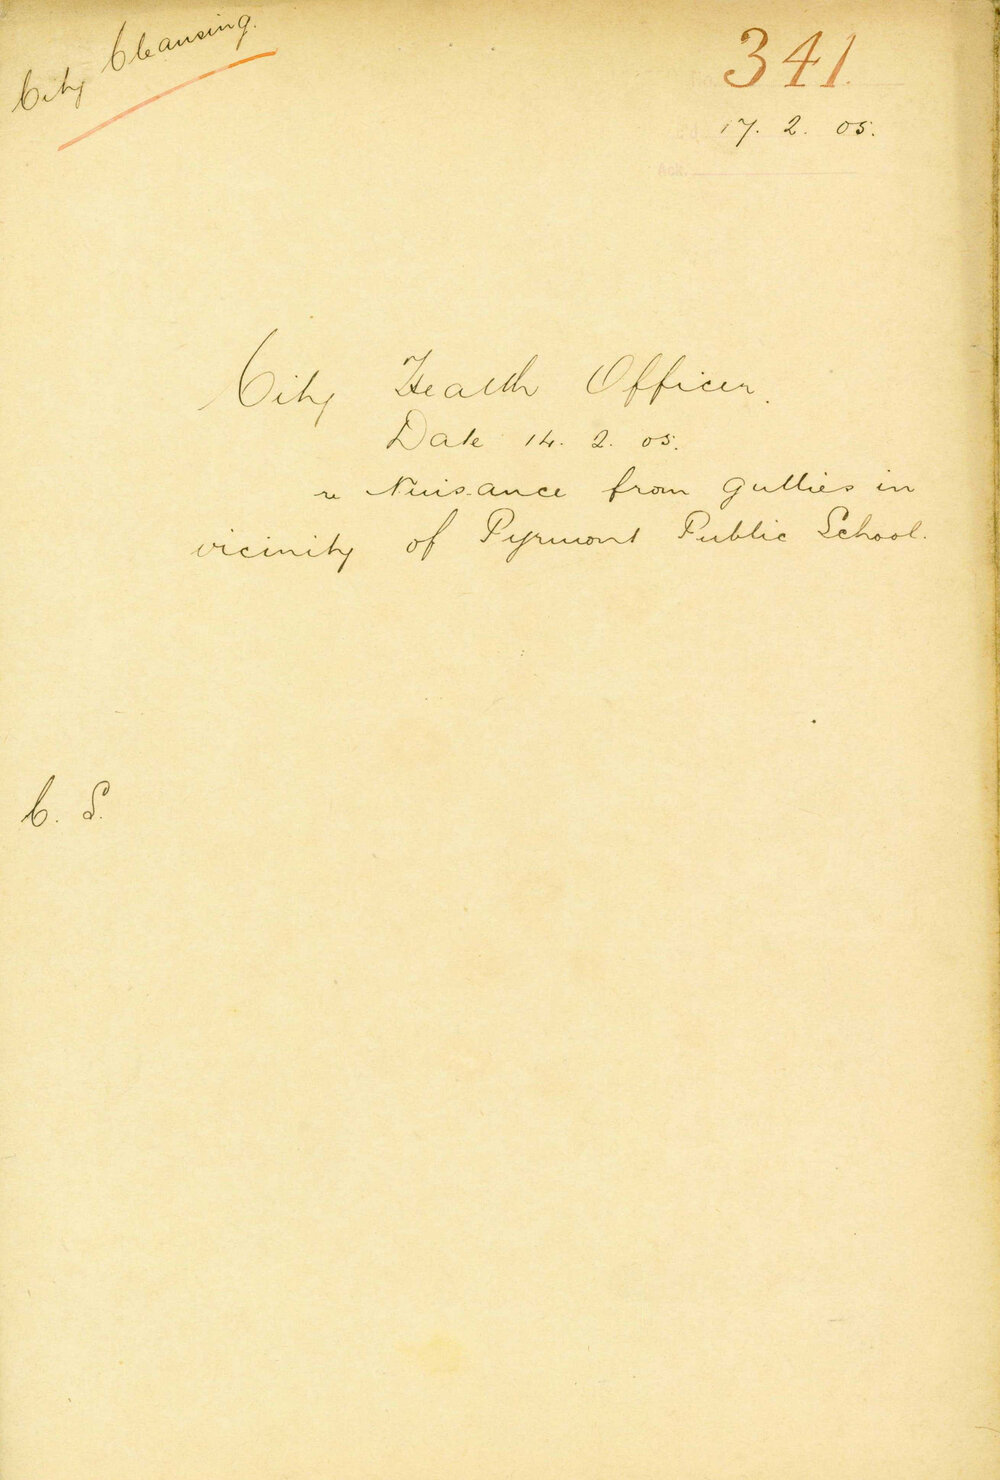 City Cleansing.
341.
17. 2. 05.
Ack.
City Health Officer.
Date 14. 2. 05.
re Nuisance from gullies in
vicinity of Pyrmont Public School.
C. S.